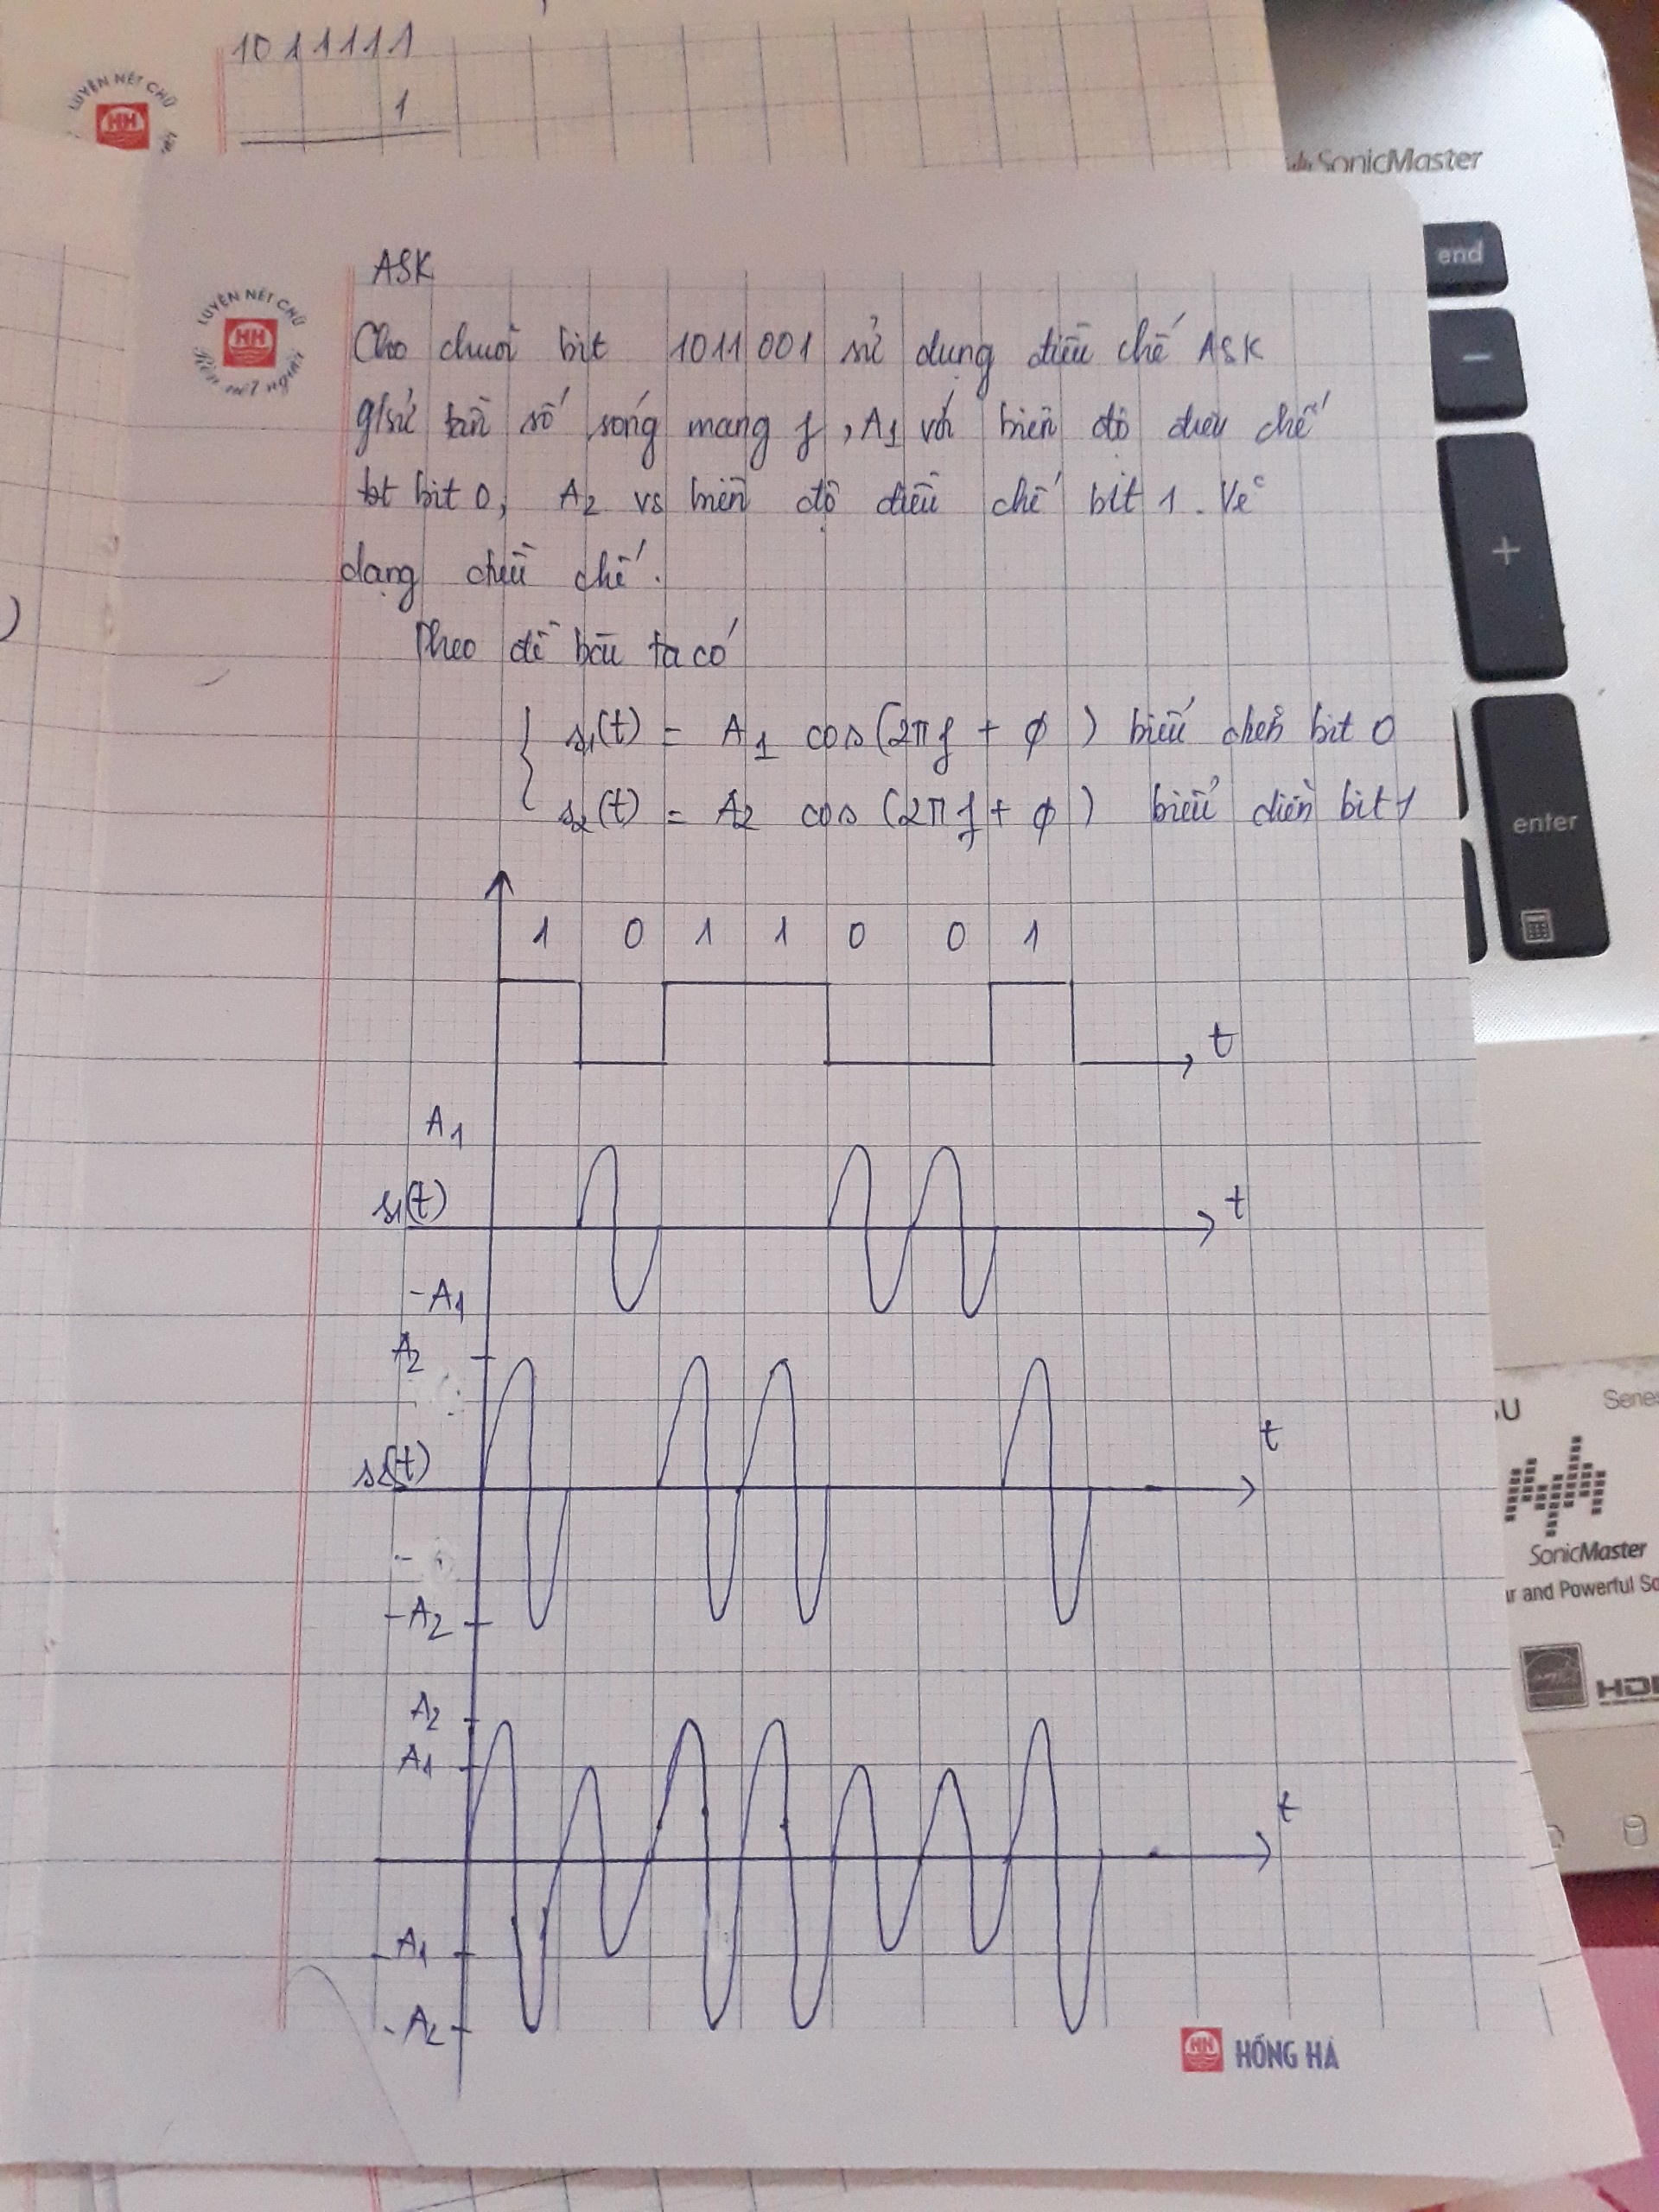 1011111
1
LUYỆN NÉT CHỮ
SonicMaster
end
ASK
LUYỆN NÉT CHỮ
Rèn nết người
HH
Cho chuỗi bit 1011001 sử dụng điều chế ASK
g/sử tần số sóng mang f, A1 với biên độ điều chế
bit 0, A2 vs biên độ điều chế bit 1. Vẽ
dạng điều chế.
Theo đề bài ta có
s1(t) = A1 cos(2πf + φ) biểu diễn bit 0
s2(t) = A2 cos(2πf + φ) biểu diễn bit 1
enter
1 0 1 1 0 0 1
t
A1
s1(t)
t
-A1
A2
s2(t)
t
-A2
Series
SonicMaster
and Powerful
HD
A2
A1
t
-A1
-A2
HH
HỒNG HÀ